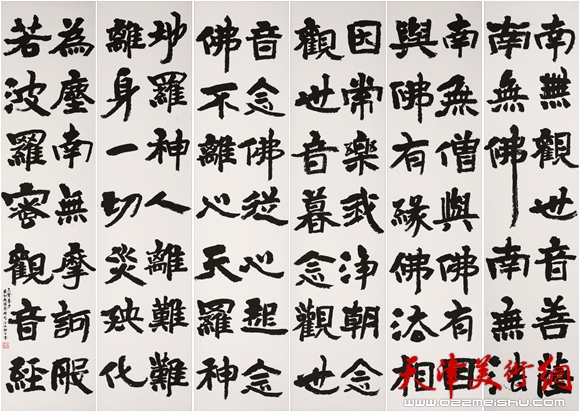 南無觀世音菩薩
南無佛南無法
南無僧與佛有
與佛有緣佛法相
因常樂我淨朝念
觀世音暮念觀世
音念佛從心起念
佛不離心天羅神
地羅神人離難難
離身一切災殃化
為塵南無摩訶般
若波羅蜜觀音經
天津美術網
www.022meishu.com